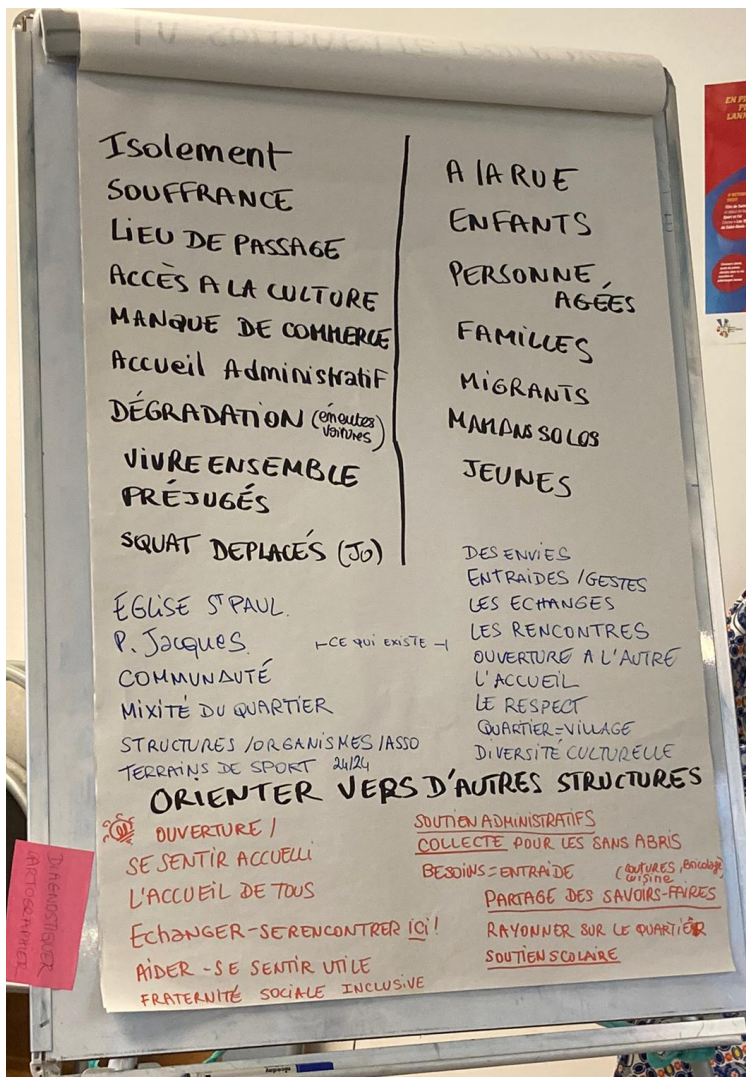 Isolement
SOUFFRANCE
LIEU DE PASSAGE
ACCÈS A LA CULTURE
MANQUE DE COMMERCE
Accueil Administratif
DÉGRADATION (émeutes
voitures)
VIVRE ENSEMBLE
PRÉJUGÉS
SQUAT DEPLACÉS (JO)
A lA RUE
ENFANTS
PERSONNE
AGÉES
FAMILLES
MIGRANTS
MAMANS SOLOS
JEUNES
ÉGLISE ST PAUL.
P. Jacques.
COMMUNAUTÉ
MIXITÉ DU QUARTIER
STRUCTURES /ORGANISMES /ASSO
TERRAINS DE SPORT 24/24
CE QUI EXISTE
DES ENVIES
ENTRAIDES /GESTES
LES ECHANGES
LES RENCONTRES
OUVERTURE A L'AUTRE
L'ACCUEIL
LE RESPECT
QUARTIER=VILLAGE
DIVERSITÉ CULTURELLE
ORIENTER VERS D'AUTRES STRUCTURES
OUVERTURE /
SE SENTIR ACCUELLI
L'ACCUEIL DE TOUS
Echanger-SE RENCONTRER ici!
AIDER - SE SENTIR UTILE
FRATERNITÉ SOCIALE INCLUSIVE
SOUTIEN ADMINISTRATIFS
COLLECTE POUR LES SANS ABRIS
BESOINS=ENTRAIDE (COUTURES, Bricolage
cuisine
PARTAGE DES SAVOIRS-FAIRES
RAYONNER SUR LE QUARTIER
SOUTIEN SCOLAIRE
DIAGNOSTIQUER
CARTOGRAPHIER